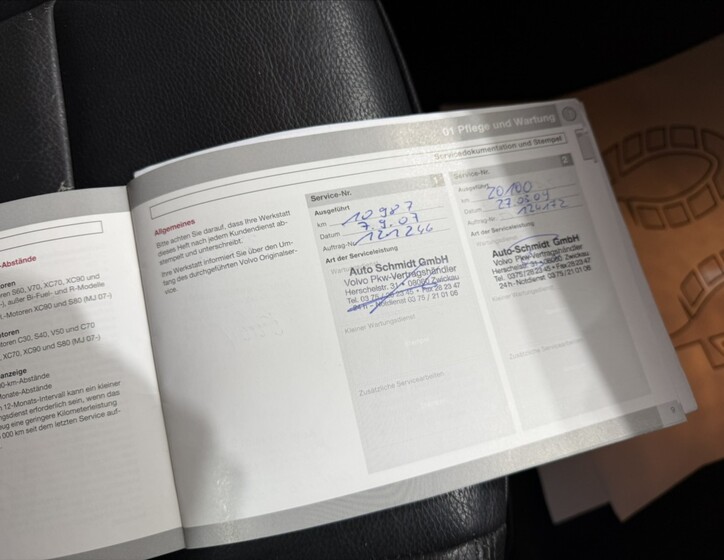 01 Pflege und Wartung
Servicedokumentation und Stempel
-Abstände
toren
oren S60, V70, XC70, XC90 und
-), außer Bi-Fuel- und R-Modelle
-Motoren XC90 und S80 (MJ 07-)
otoren
otoren C30, S40, V50 und C70
, XC70, XC90 und S80 (MJ 07-)
anzeige
00-km-Abstände
Monate-Abstände
n 12-Monats-Intervall kann ein kleiner
ngsdienst erforderlich sein, wenn das
eug eine geringere Kilometerleistung
000 km seit dem letzten Service auf-
Allgemeines
Bitte achten Sie darauf, dass Ihre Werkstatt
dieses Heft nach jedem Kundendienst ab-
stempelt und unterschreibt.
Ihre Werkstatt informiert Sie über den Um-
fang des durchgeführten Volvo Originalser-
vice.
Service-Nr. 1
Ausgeführt
km 10987
Datum 7.9.07
Auftrag-Nr. 121246
Art der Serviceleistung
Auto Schmidt GmbH
Volvo Pkw-Vertragshändler
Herschelstr. 31 • 08060 Zwickau
Tel. 03 75 / 28 23 45 • Fax 28 23 47
24 h - Notdienst 03 75 / 21 01 06
Kleiner Wartungsdienst
Zusätzliche Servicearbeiten
Service-Nr. 2
Ausgeführt
km 20100
Datum 27.03.09
Auftrag-Nr.
Art der Serviceleistung
Auto-Schmidt GmbH
Volvo Pkw-Vertragshändler
Herschelstr. 31 • 08060 Zwickau
Tel. 0375/28 23 45 • Fax 28 23 47
24 h - Notdienst 03 75 / 21 01 06
Kleiner Wartungsdienst
Zusätzliche Servicearbeiten
9